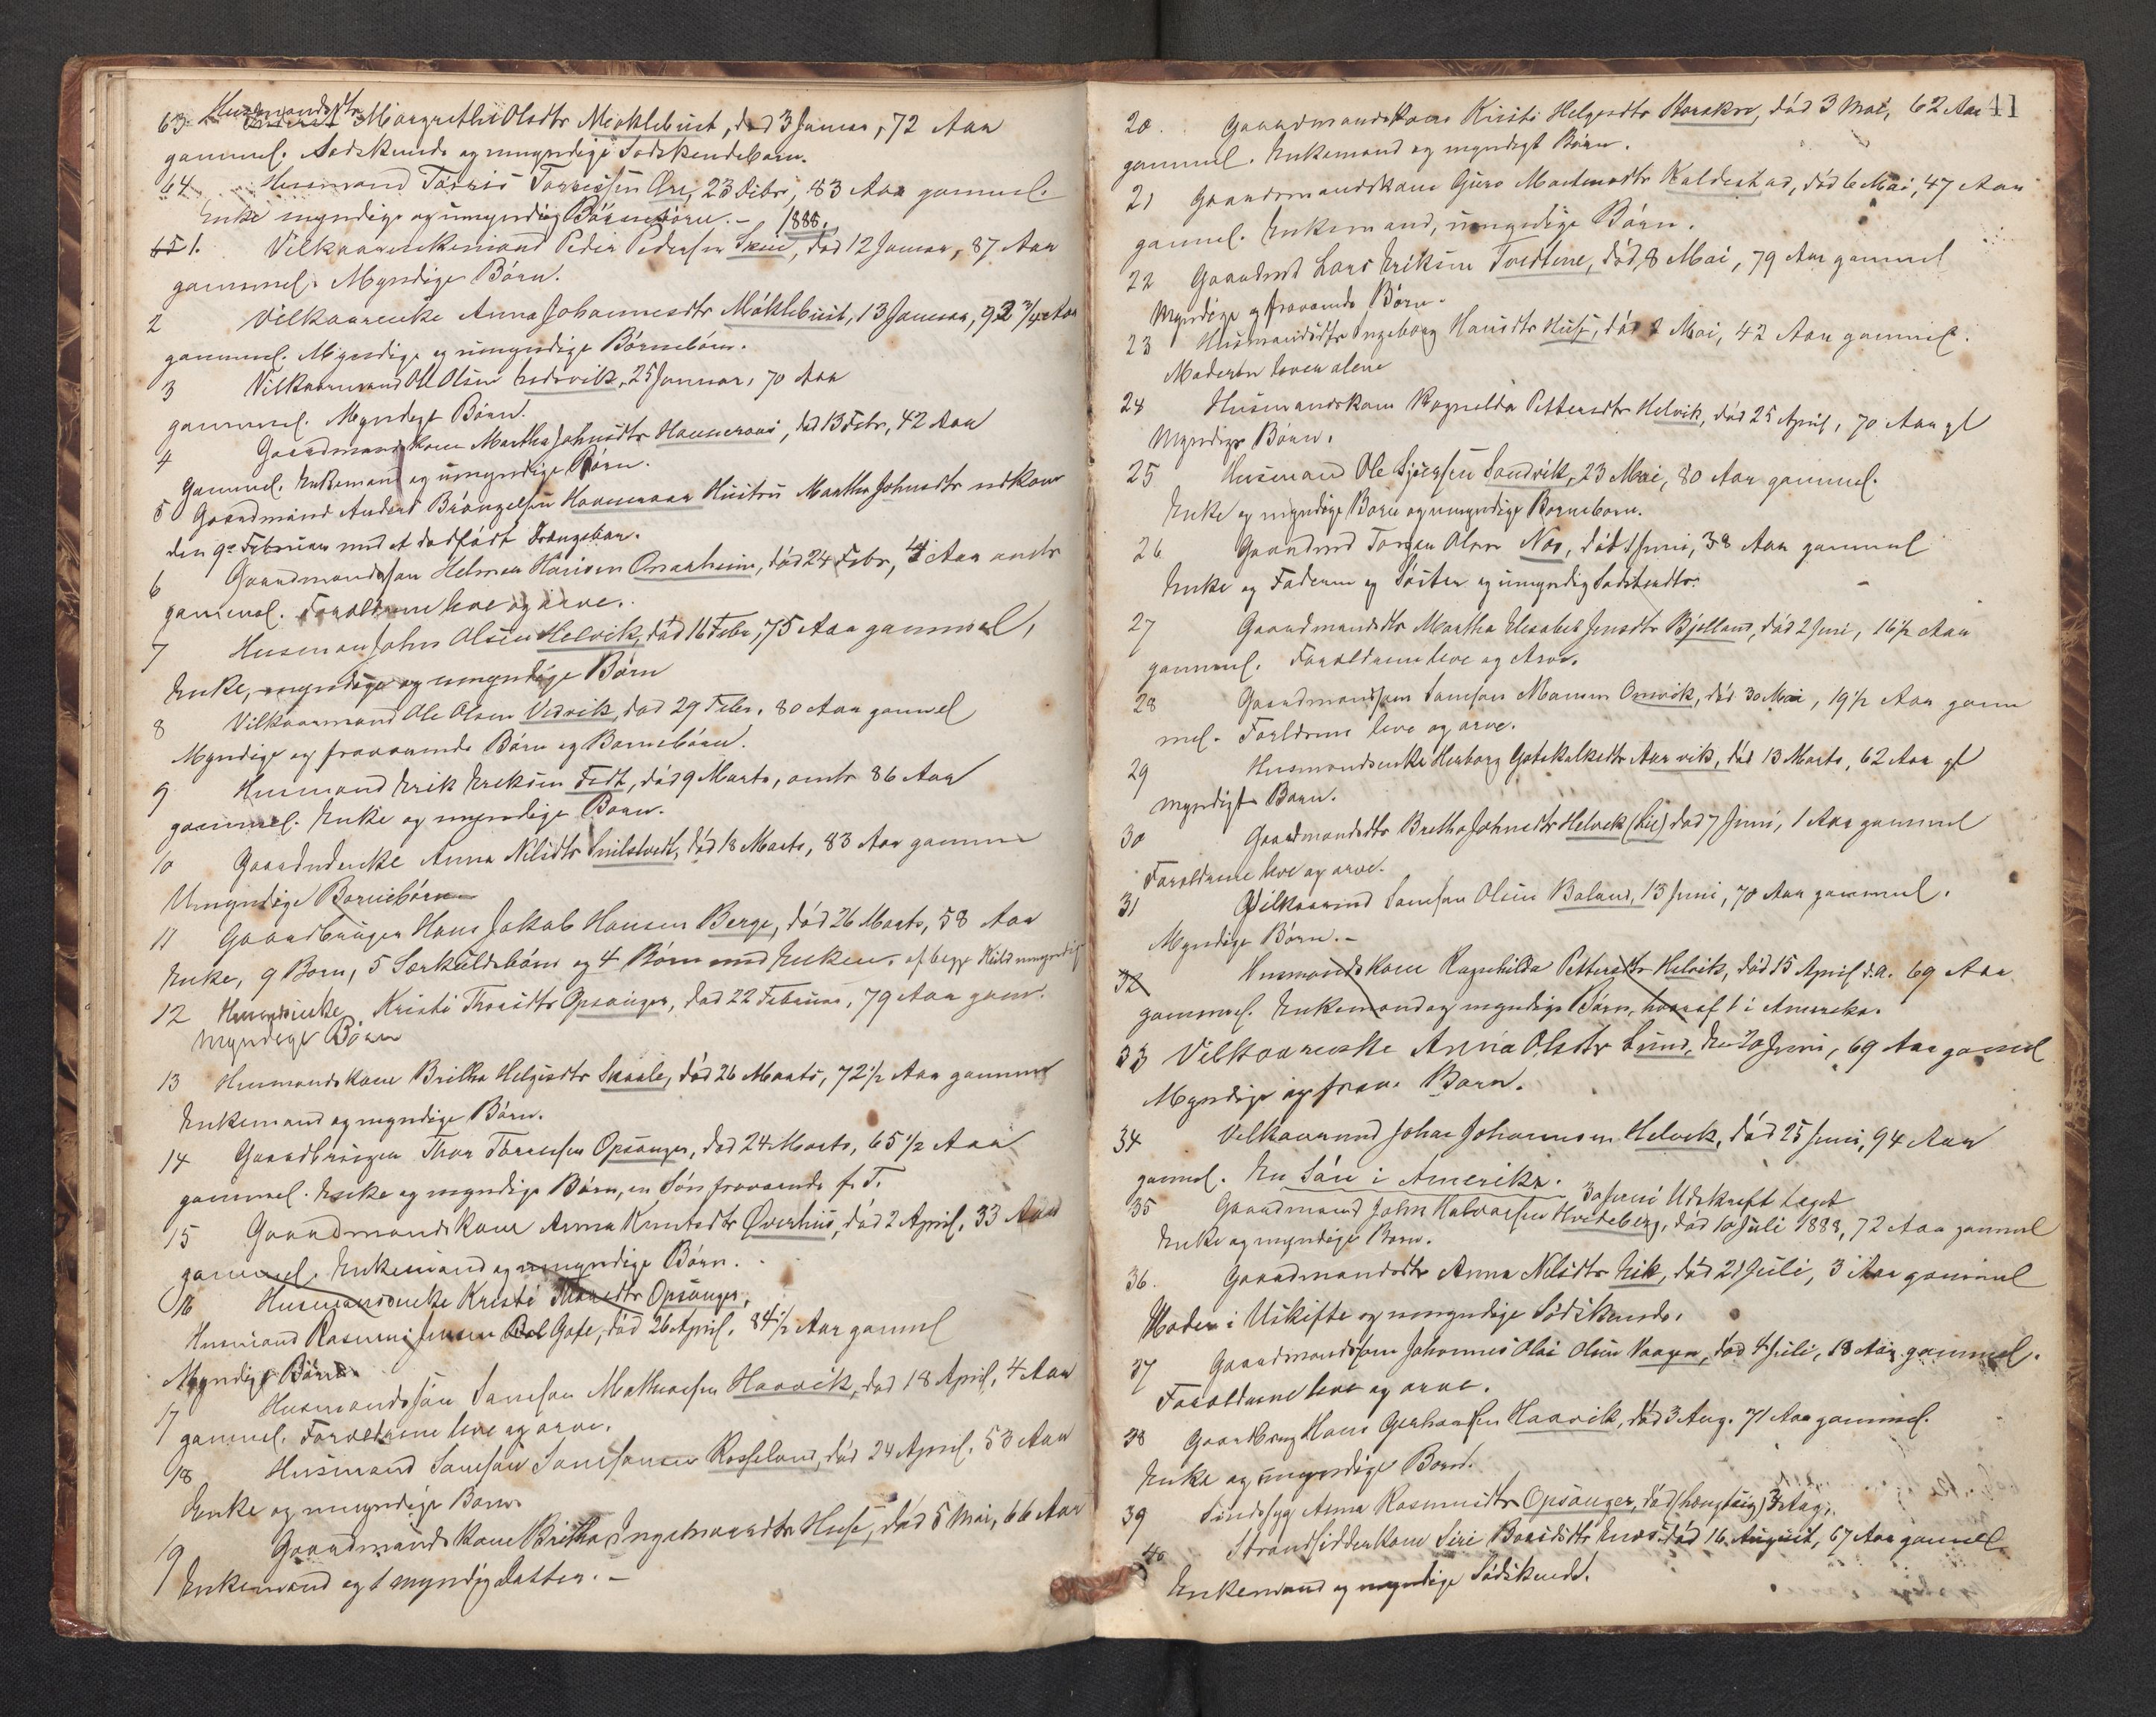 63 Husmandsdtr Margrethe Olsdtr Møklebust, død 3 Januar, 72 Aar
gammel. Sødskende og umyndige Sødskendebørn.
64 Husmand Tørris Tørrissen Øre, 23 Dcbr, 83 Aar gammel.
Enke myndige og umyndig Børnebørn. -
1888.
65 1. Vilkaarsenkemand Peder Pedersen Skue, død 12 Januar, 87 Aar
gammel. Myndige Børn.
2 Vilkaarenke Anna Johannesdtr Møklebust, 13 Januar, 92 3/4 Aar
gammel. Myndige og umyndige Børnebørn.
3 Vilkaarmand Ole Olsen Lersvik, 25 Januar, 70 Aar
gammel. Myndige Børn.
4 Gaardmandskone Martha Johnsdtr Hammeraas, død 13 Febr, 42 Aar
gammel. Enkemand og umyndige Børn.
5 Gaardmand Anders Hammeraas Hustru Martha Johnsdtr nedkom
den 9de Februar med et dødfødt Drengebarn.
6 Gaardmandssøn Helmer Hansen Omarheim, død 24 Febr, 4 Aar omtr
gammel. Forældrene leve og arve.
7 Husmand John Olsen Helvik, død 16 Febr, 75 Aar gammel,
Enke, myndige og umyndige Børn
8 Vilkaarmand Ole Olsen Vidvik, død 29 Febr. 80 Aar gammel
Myndige og fraværende Børn og Børnebørn.
9 Husmand Erik Eriksen Tedt, død 9 Marts, omtr 86 Aar
gammel. Enke og myndige Børn.
10 Gaardmdenke Anna Nilsdtr Snilstveit, død 18 Marts, 83 Aar gammel
Umyndige Børnebørn
11 Gaardbruger Hans Jakob Hansen Berge, død 26 Marts, 58 Aar
Enke, 9 Børn, 5 Særkuldsbørn og 4 Børn med Enken. af begge Kuld umyndige
12 Husmdsenke Kristi Thorsdtr Opsanger, død 22 Februar, 79 Aar gam.
Myndige Børn
13 Husmandskone Britha Helgesdtr Skaale, død 26 Marts, 72 1/2 Aar gammel
Enkemand og myndige Børn.
14 Gaardbruger Thor Thorsen Opsanger, død 24 Marts, 65 1/2 Aar
gammel. Enke og myndige Børn, en Søn fraværende f. T.
15 Gaardmandskone Anna Knutsdtr Øverhus, død 2 April, 33 Aar
gammel. Enkemand og umyndige Børn.
16 Husmandsenke Kristi Thorsdtr Opsanger,
Husmand Rasmus Jensen Gote, død 26 April, 84 1/2 Aar gammel
Myndige Børn.
17 Husmandssøn Samson Mathiassen Haavik, død 18 April, 4 Aar
gammel. Forældrene leve og arve.
18 Husmand Samson Samsonsen Rosseland, død 24 April. 53 Aar
Enke og umyndige Børn.
19 Gaardmandskone Britha Ingebrigtsdtr Huse, død 5 Mai, 66 Aar
Enkemand og 1 myndig Datter. -
41
20. Gaardmandskone Kristi Helgesdtr, død 3 Mai, 62 Aar
gammel. Enkemand og myndigt Børn.
21 Gaardmandskone Guro Mortensdtr Kaldestad, død 6 Mai, 47 Aar
gammel. Enkemand, umyndige Børn.
22 Gaardmd Lars Eriksen Tveitene, død 8 Mai, 79 Aar gammel
Myndige og fraværende Børn.
23 Husmandsdtr Ingeborg Hansdtr Huse, død 2 Mai, 42 Aar gammel.
Moderen lever alene
24 Husmandskone Ragnilda Pettersdtr Helvik, død 25 April, 70 Aar gl
Myndige Børn.
25 Husmand Ole Sjursen Sandvik, 23 Mai, 80 Aar gammel.
Enke og myndige Børn og umyndige Børnebørn.
26 Gaardmd Olsen Næs, død 1 Juni, 38 Aar gammel
Enke og Faderen og Søster og umyndig
27 Gaardmandsdtr Martha Elisabet Jensdtr Bjelland, død 2 Juni, 16 1/2 Aar
gammel. Forældrene leve og Arve.
28 Gaardmandssøn Samson Monsen Omvik, død 30 Mai, 19 1/2 Aar gam
mel. Forældrene leve og arve.
29 Husmandsenke Herborg Gotskalksdtr Aarvik, død 13 Marts, 62 Aar gl
myndige Børn.
30 Gaardmandsdtr Bretha Johnsdtr Helvik (Lie) død 7 Juni, 1 Aar gammel
Forældrene leve og arve.
31 Vilkaarmd Samson Olsen Baland, 13 Juni, 70 Aar gammel.
Myndige Børn. -
32 Husmandskone Ragnhilda Pettersdtr Helvik, død 15 April d.A. 69 Aar
gammel. Enkemand og myndige Børn, hvoraf 1 i Amerika.
33 Vilkaarenke Anna Olsdtr Lund, 20 Juni, 69 Aar gammel
Myndige og frav. Børn.
34 Vilkaarmd Johan Johannesen Helvik, død 25 Juni, 94 Aar
gammel. En Søn i Amerika. 30 Juni Udskrift taget
35 Gaardmand John Halvorsen Hvideberg, død 10 Juli 1888, 72 Aar gammel
Enke og myndige Børn.
36. Gaardmandsdtr Anna Nilsdtr Eik, død 21 Juli, 3 Aar gammel
Moder i Uskifte og umyndige Sødskende.
37 Gaardmandssøn Johannes Olai Olsen Vaagen, død 4 Juli, 18 Aar gammel.
Forældrene leve og arve.
38 Gaardbrug Hans Gerhardsen Haavik, død 3 Aug. 71 Aar gammel.
Enke og umyndige Børn.
39 Sindssyg Anna Rasmusdtr Opsanger, død (hængt sig) 3 Aug.
40 Strandsidderkone Siri Baardsdtr død 16 August, 67 Aar gammel
Enkemand og myndige Sødskende.